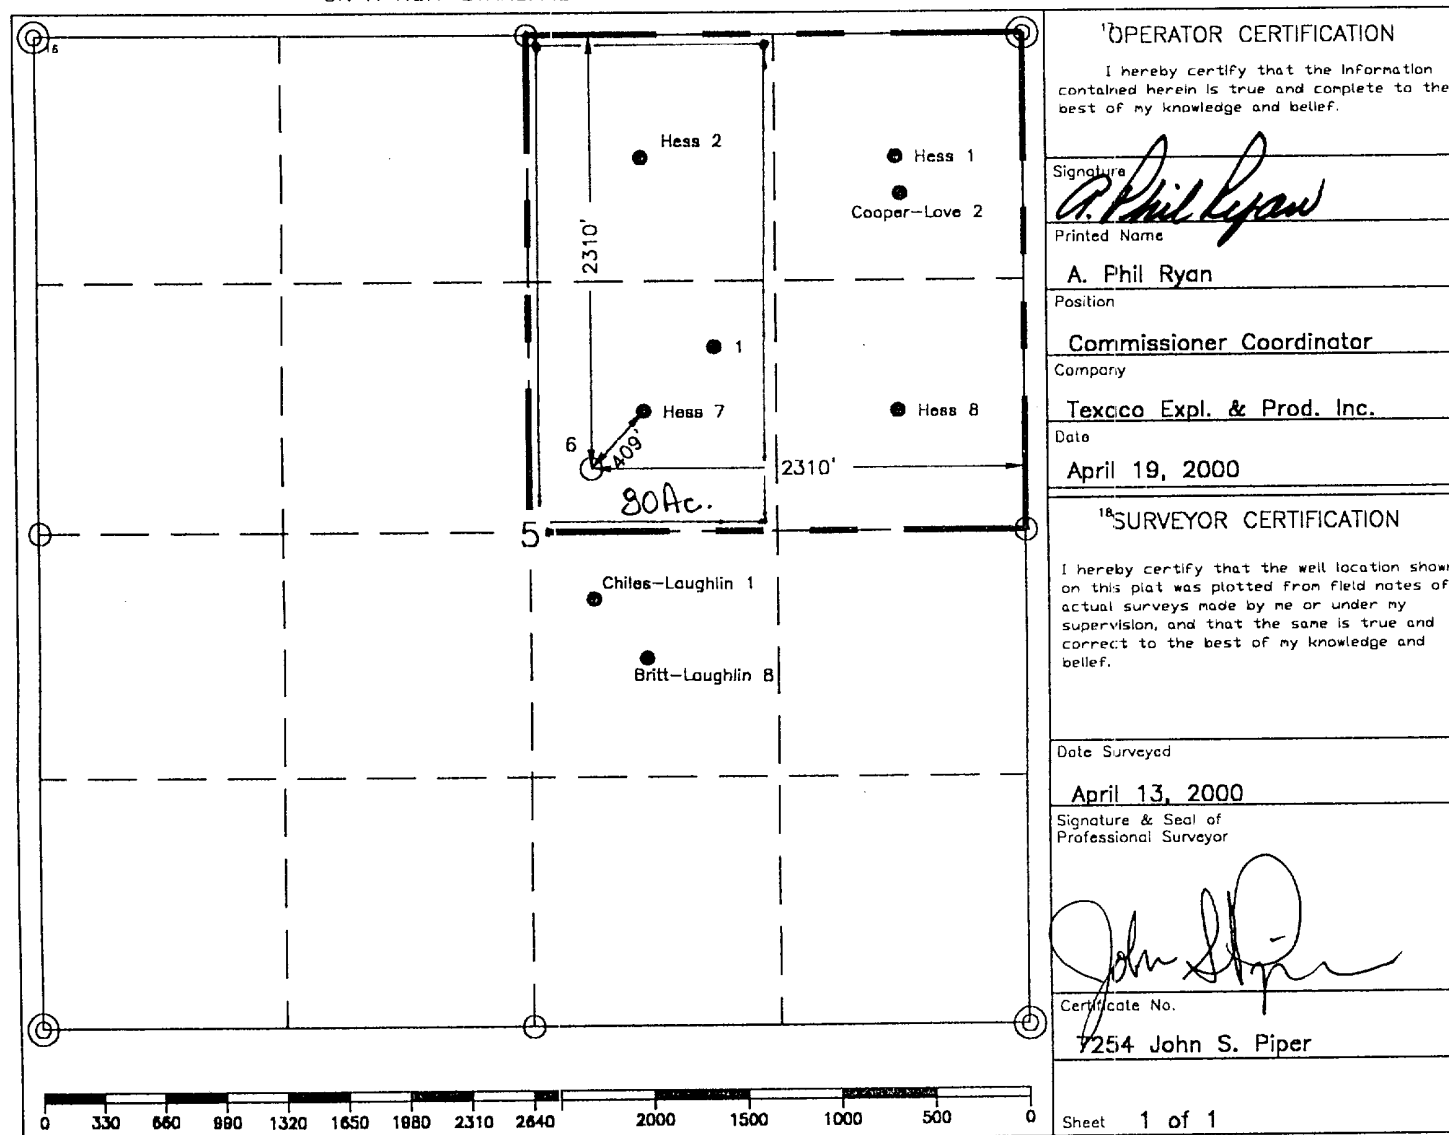 16
Hess 2
Hess 1
Cooper-Love 2
2310'
1
Hess 7
Hess 8
6
409'
2310'
80Ac.
5
Chiles-Laughlin 1
Britt-Laughlin 8
0 330 660 990 1320 1650 1980 2310 2640 2000 1500 1000 500 0
17 OPERATOR CERTIFICATION
I hereby certify that the information
contained herein is true and complete to the
best of my knowledge and belief.
Signature
A. Phil Ryan
Printed Name
A. Phil Ryan
Position
Commissioner Coordinator
Company
Texaco Expl. & Prod. Inc.
Date
April 19, 2000
18 SURVEYOR CERTIFICATION
I hereby certify that the well location shown
on this plat was plotted from field notes of
actual surveys made by me or under my
supervision, and that the same is true and
correct to the best of my knowledge and
belief.
Date Surveyed
April 13, 2000
Signature & Seal of
Professional Surveyor
John S. Piper
Certificate No.
7254 John S. Piper
Sheet 1 of 1